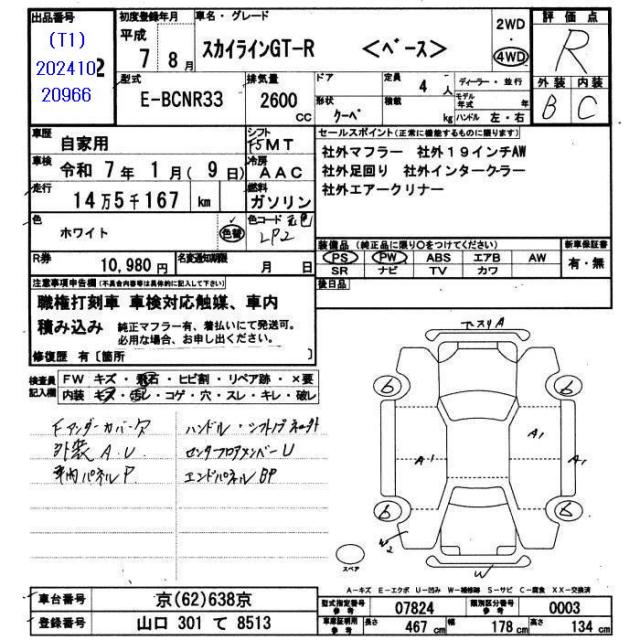 出品番号 初度登録年月 車名・グレード 2WD 評価点
(T1) 平成 スカイラインGT-R <ベース> 4WD R
202410 2 7 8月
20966 型式 排気量 ドア 定員 4人 ディーラー・並行 外装 内装
E-BCNR33 2600 CC 形状 クーペ 積載 kg モデル年式 年 ハンドル 左・右 B C
車歴 自家用 シフト F5 MT セールスポイント(正常に機能するものに限ります)
車検 令和 7年 1月( 9日) 冷房 AAC 社外マフラー 社外19インチAW
社外足回り 社外インタークーラー
走行 14万5千167 km 燃料 ガソリン 社外エアークリナー
色 ホワイト 色替 色コード 元色 LP2
装備品(純正品に限り○をつけてください) 新車保証書
R券 10,980円 名変通知期限 月 日 PS PW ABS エアB AW 有・無
SR ナビ TV カワ
注意事項申告欄(不具合内容等は具体的に記入して下さい) 後日品
職権打刻車 車検対応触媒、車内
積み込み 純正マフラー有、着払いにて発送可。
必要な場合、お申し出ください。
修復歴 有〔箇所 〕
検査員記入欄 FW キズ・飛石・ヒビ割・リペア跡・×要
内装 キズ・汚レ・コゲ・穴・スレ・キレ・破レ
Fアンダーカバーズ ハンドル・シフトノブ
外装A.U センターフロアメンバーU
車内パネルP エンドパネルBP
下スリA
6 6
A1 A1 A1
6 6
W2
W
スペア
A-キズ E-エクボ U-凹み W-補修跡 S-サビ C-腐食 XX-交換済
車台番号 京(62)638京 型式指定番号 参考 07824 類別区分番号 参考 0003
登録番号 山口 301 て 8513 車庫証明用 参考 長さ 467cm 幅 178cm 高さ 134cm